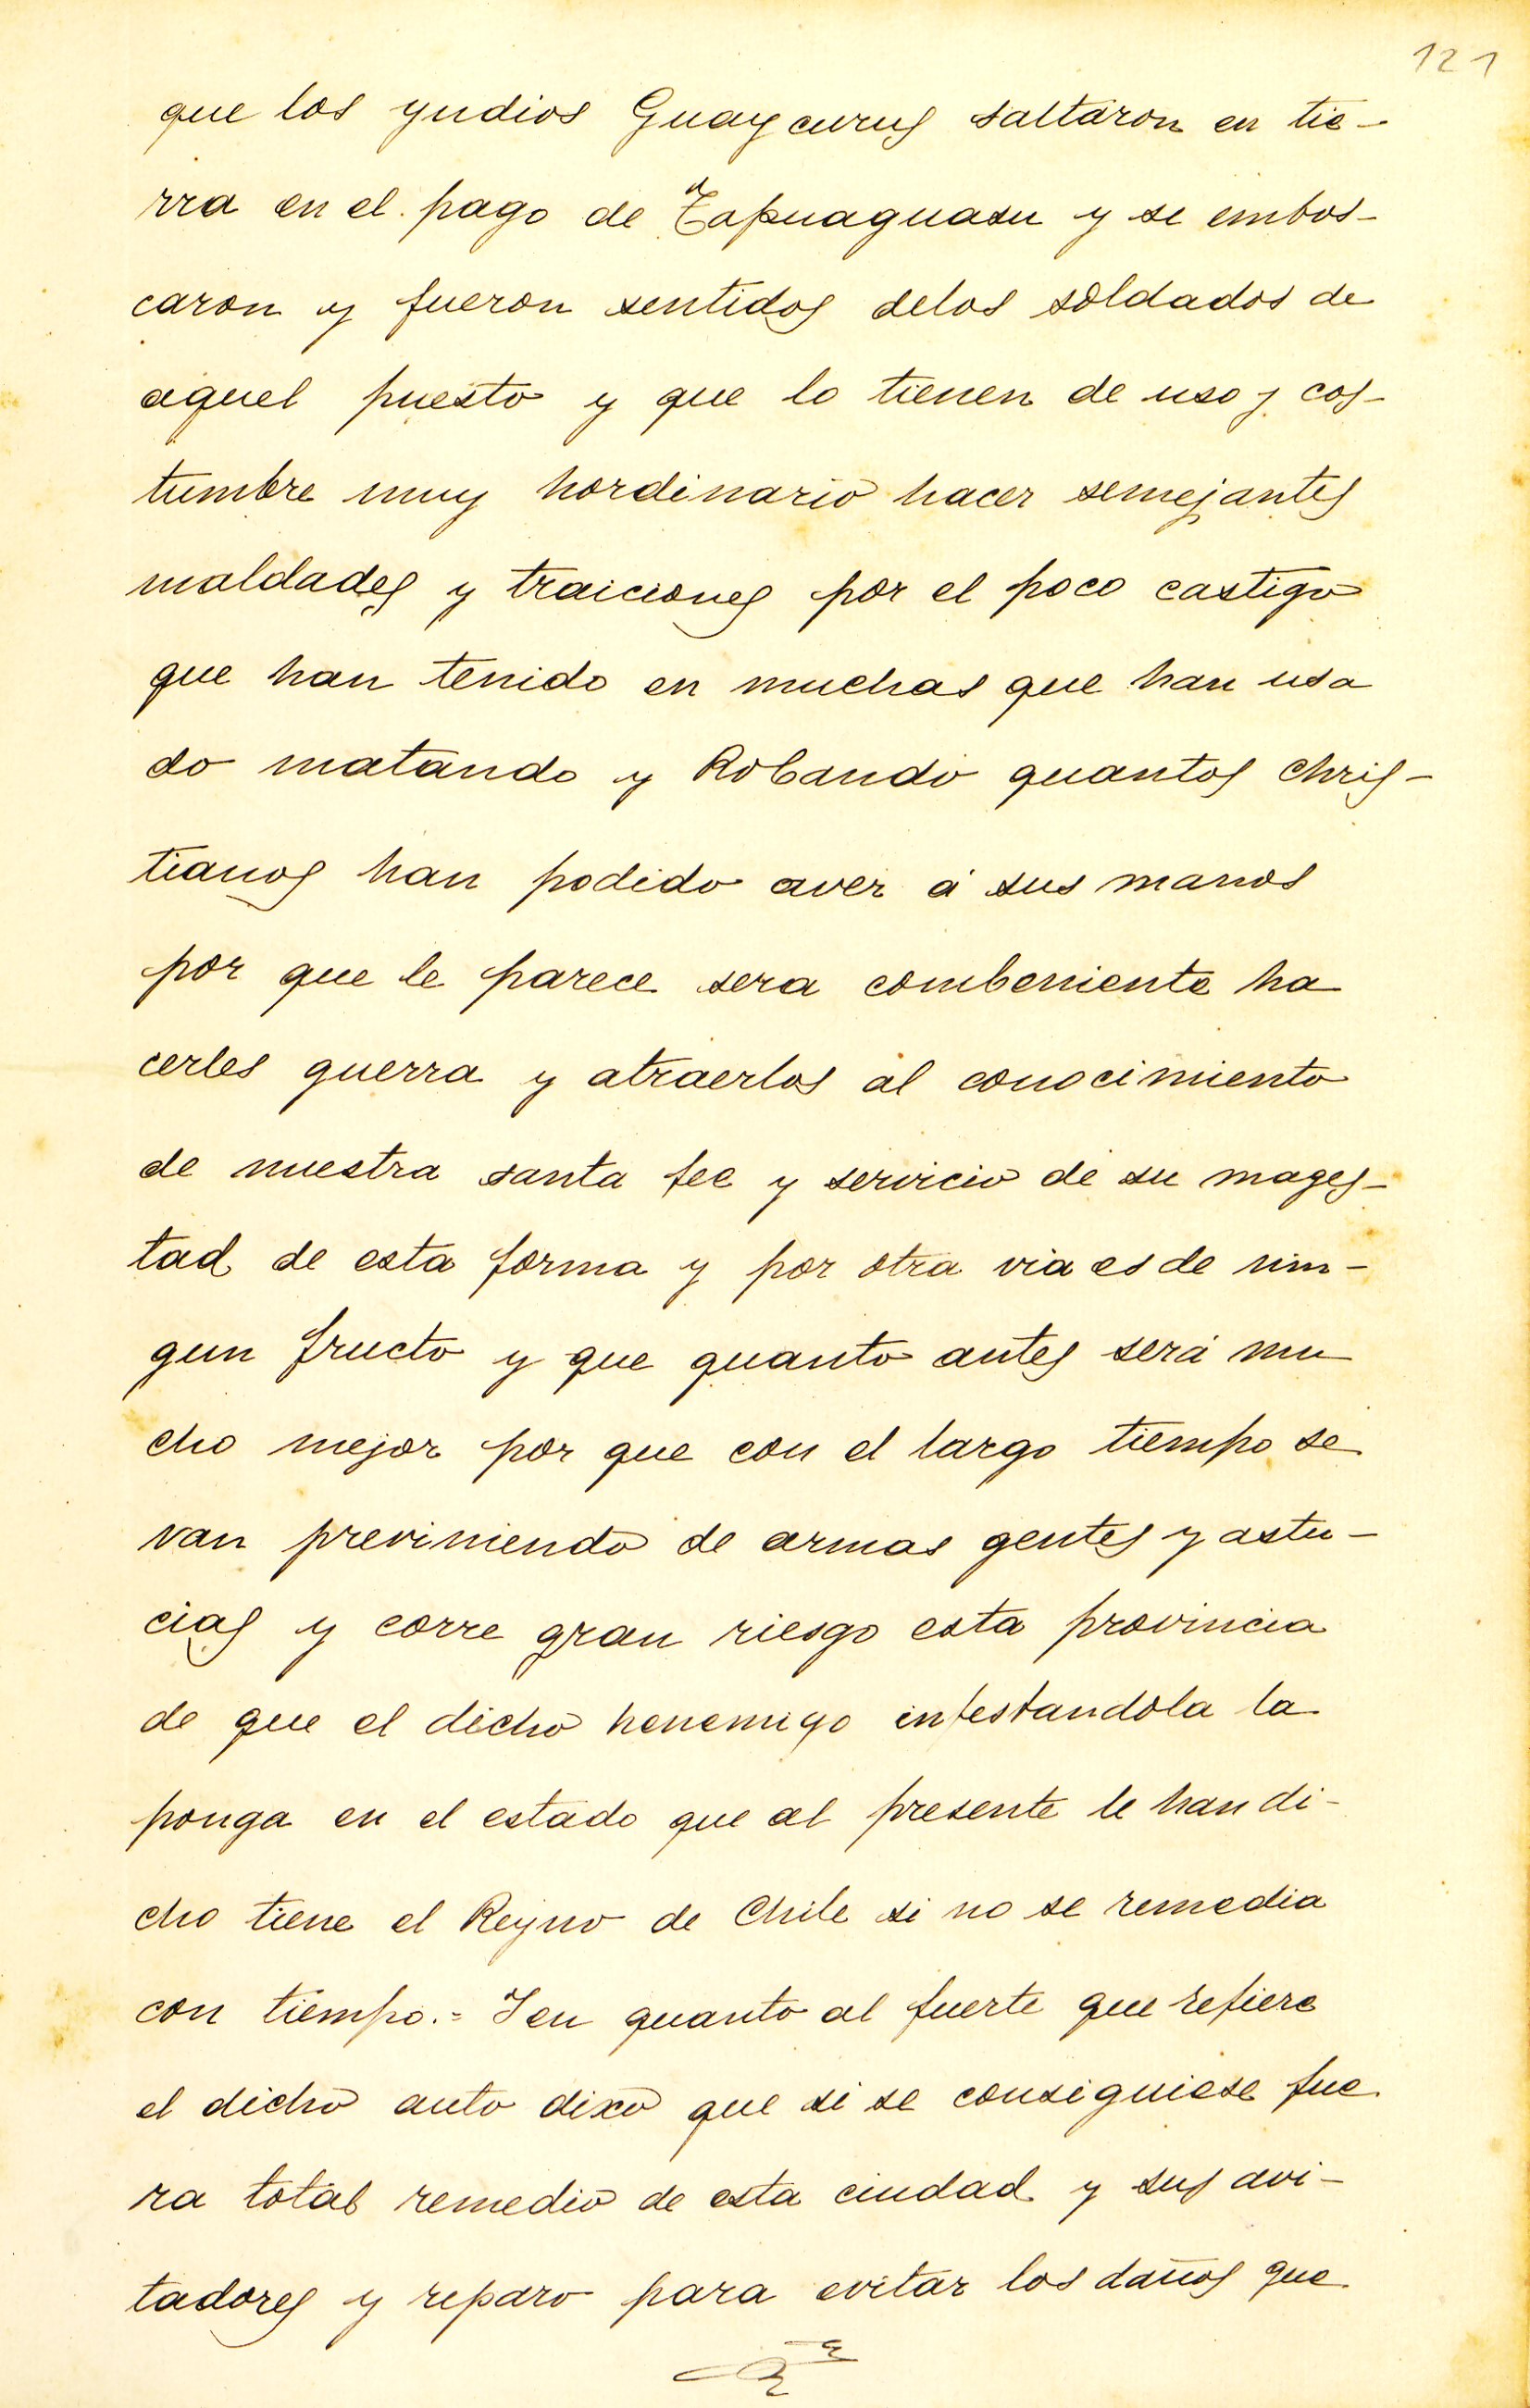 121
que los yndios Guaycurus saltaron en tie-
rra en el pago de Tapuaguasu y se embos-
caron y fueron sentidos delos soldados de
aquel puesto y que lo tienen de uso y cos-
tumbre muy hordinario hacer semejantes
maldades y traiciones por el poco castigo
que han tenido en muchas que han usa
do matando y Robando quantos chris-
tianos han podido aver á sus manos
por que le parece sera combeniente ha
cerles guerra y atraerlos al conocimiento
de nuestra santa fee y servicio de su mages-
tad de esta forma y por otra via es de nin-
gun fructo y que quanto antes será mu
cho mejor por que con el largo tiempo se
van previniendo de armas gentes y astu-
cias y corre gran riesgo esta provincia
de que el dicho henemigo infestandola la
ponga en el estado que al presente le han di-
cho tiene el Reyno de Chile si no se remedia
con tiempo.= I en quanto al fuerte que refiere
el dicho auto dixo que si se consiguiese fue
ra total remedio de esta ciudad y sus avi-
tadores y reparo para evitar los daños que